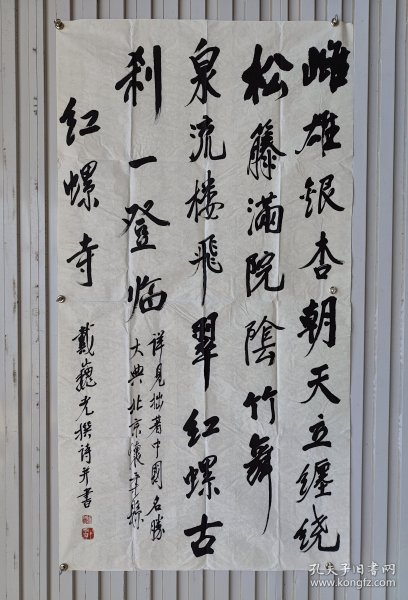 雌雄银杏朝天立缠绕
松籐满院陰竹舞
泉流楼飛翠红螺古
刹一登临
詳見拙著中國名勝
大典北京懷柔縣
红螺寺
戴巍光撰诗并書
孔夫子旧书网
www.kongfz.com